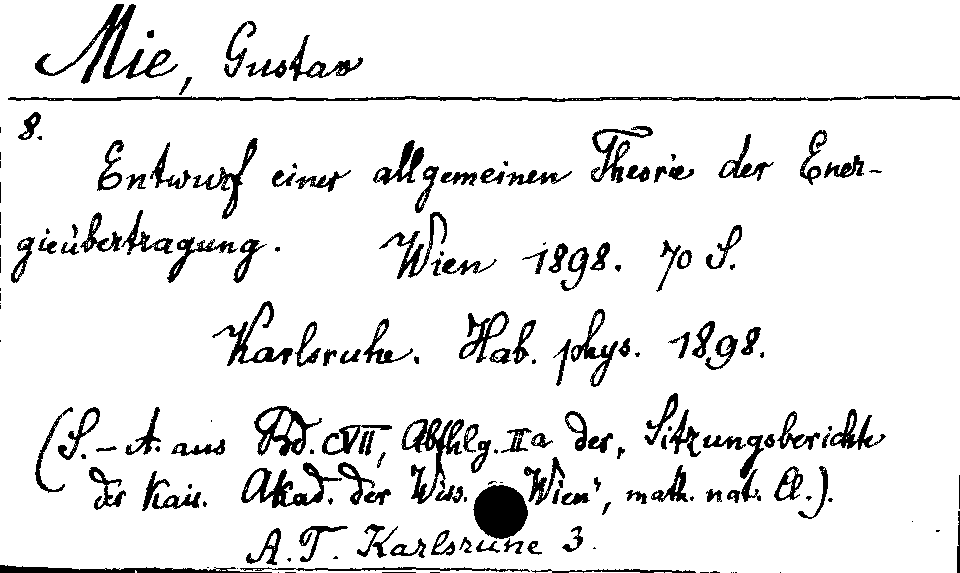 Mie, Gustav
8.
Entwurf einer allgemeinen Theorie der Ener-
gieübertragung. Wien 1898. 70 S.
Karlsruhe. Hab. phys. 1898.
(S.-A. aus Bd. CVII, Abthlg. IIa der „Sitzungsberichte
der Kais. Akad. der Wiss. Wien", math. nat. Cl.).
A.T. Karlsruhe 3.